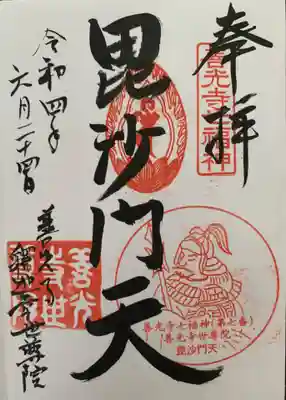 奉拝
善光寺七福神
毘沙門天
令和四年
六月二十四日
善光寺
釈迦堂世尊院
善光寺七福神(第七番)
善光寺世尊院
毘沙門天